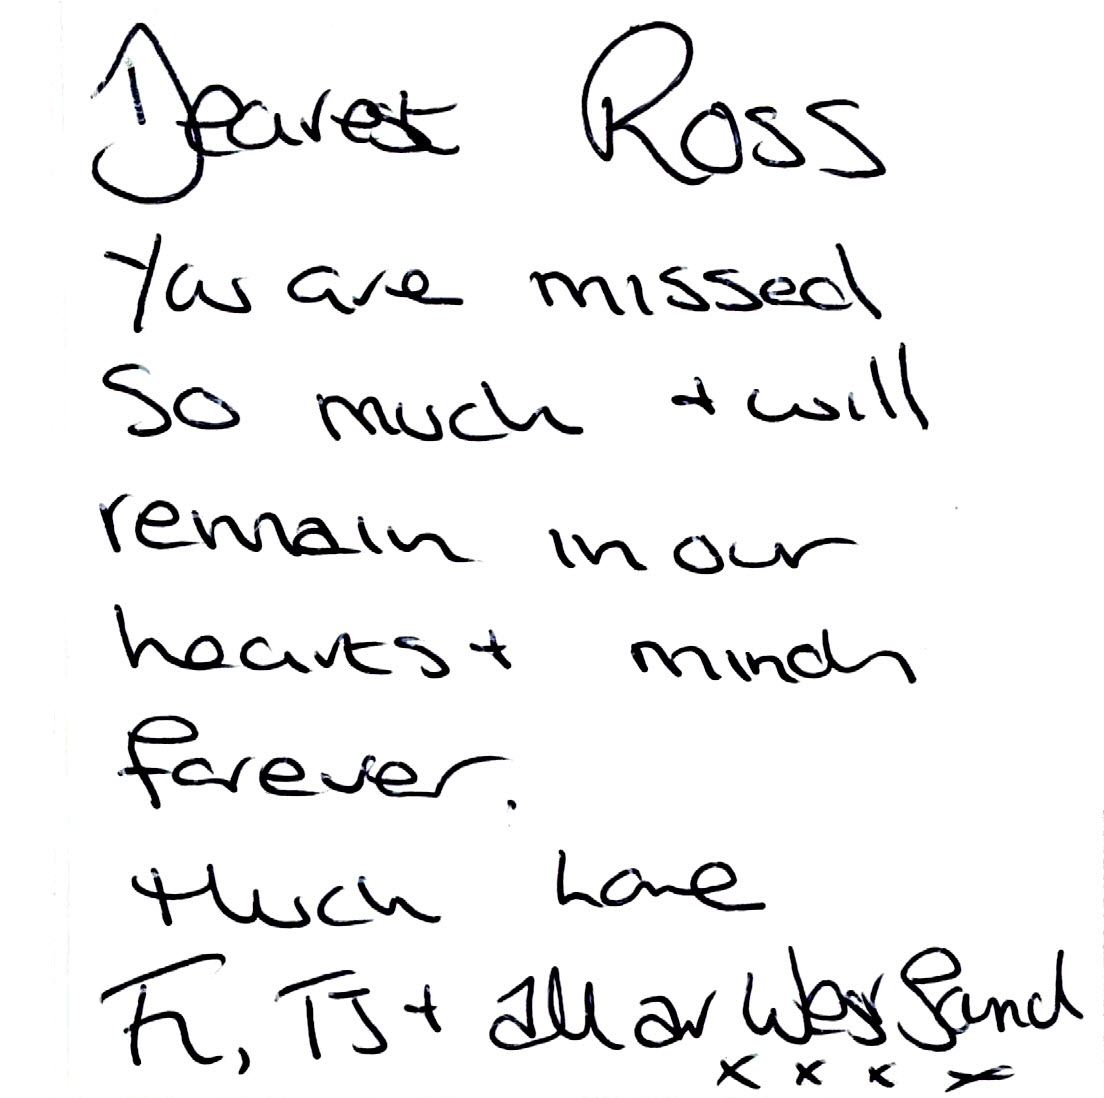 Dearest Ross
You are missed
so much + will
remain in our
hearts + minds
forever.
Much Love
Fi, TJ + all at Wayfand
x x x x